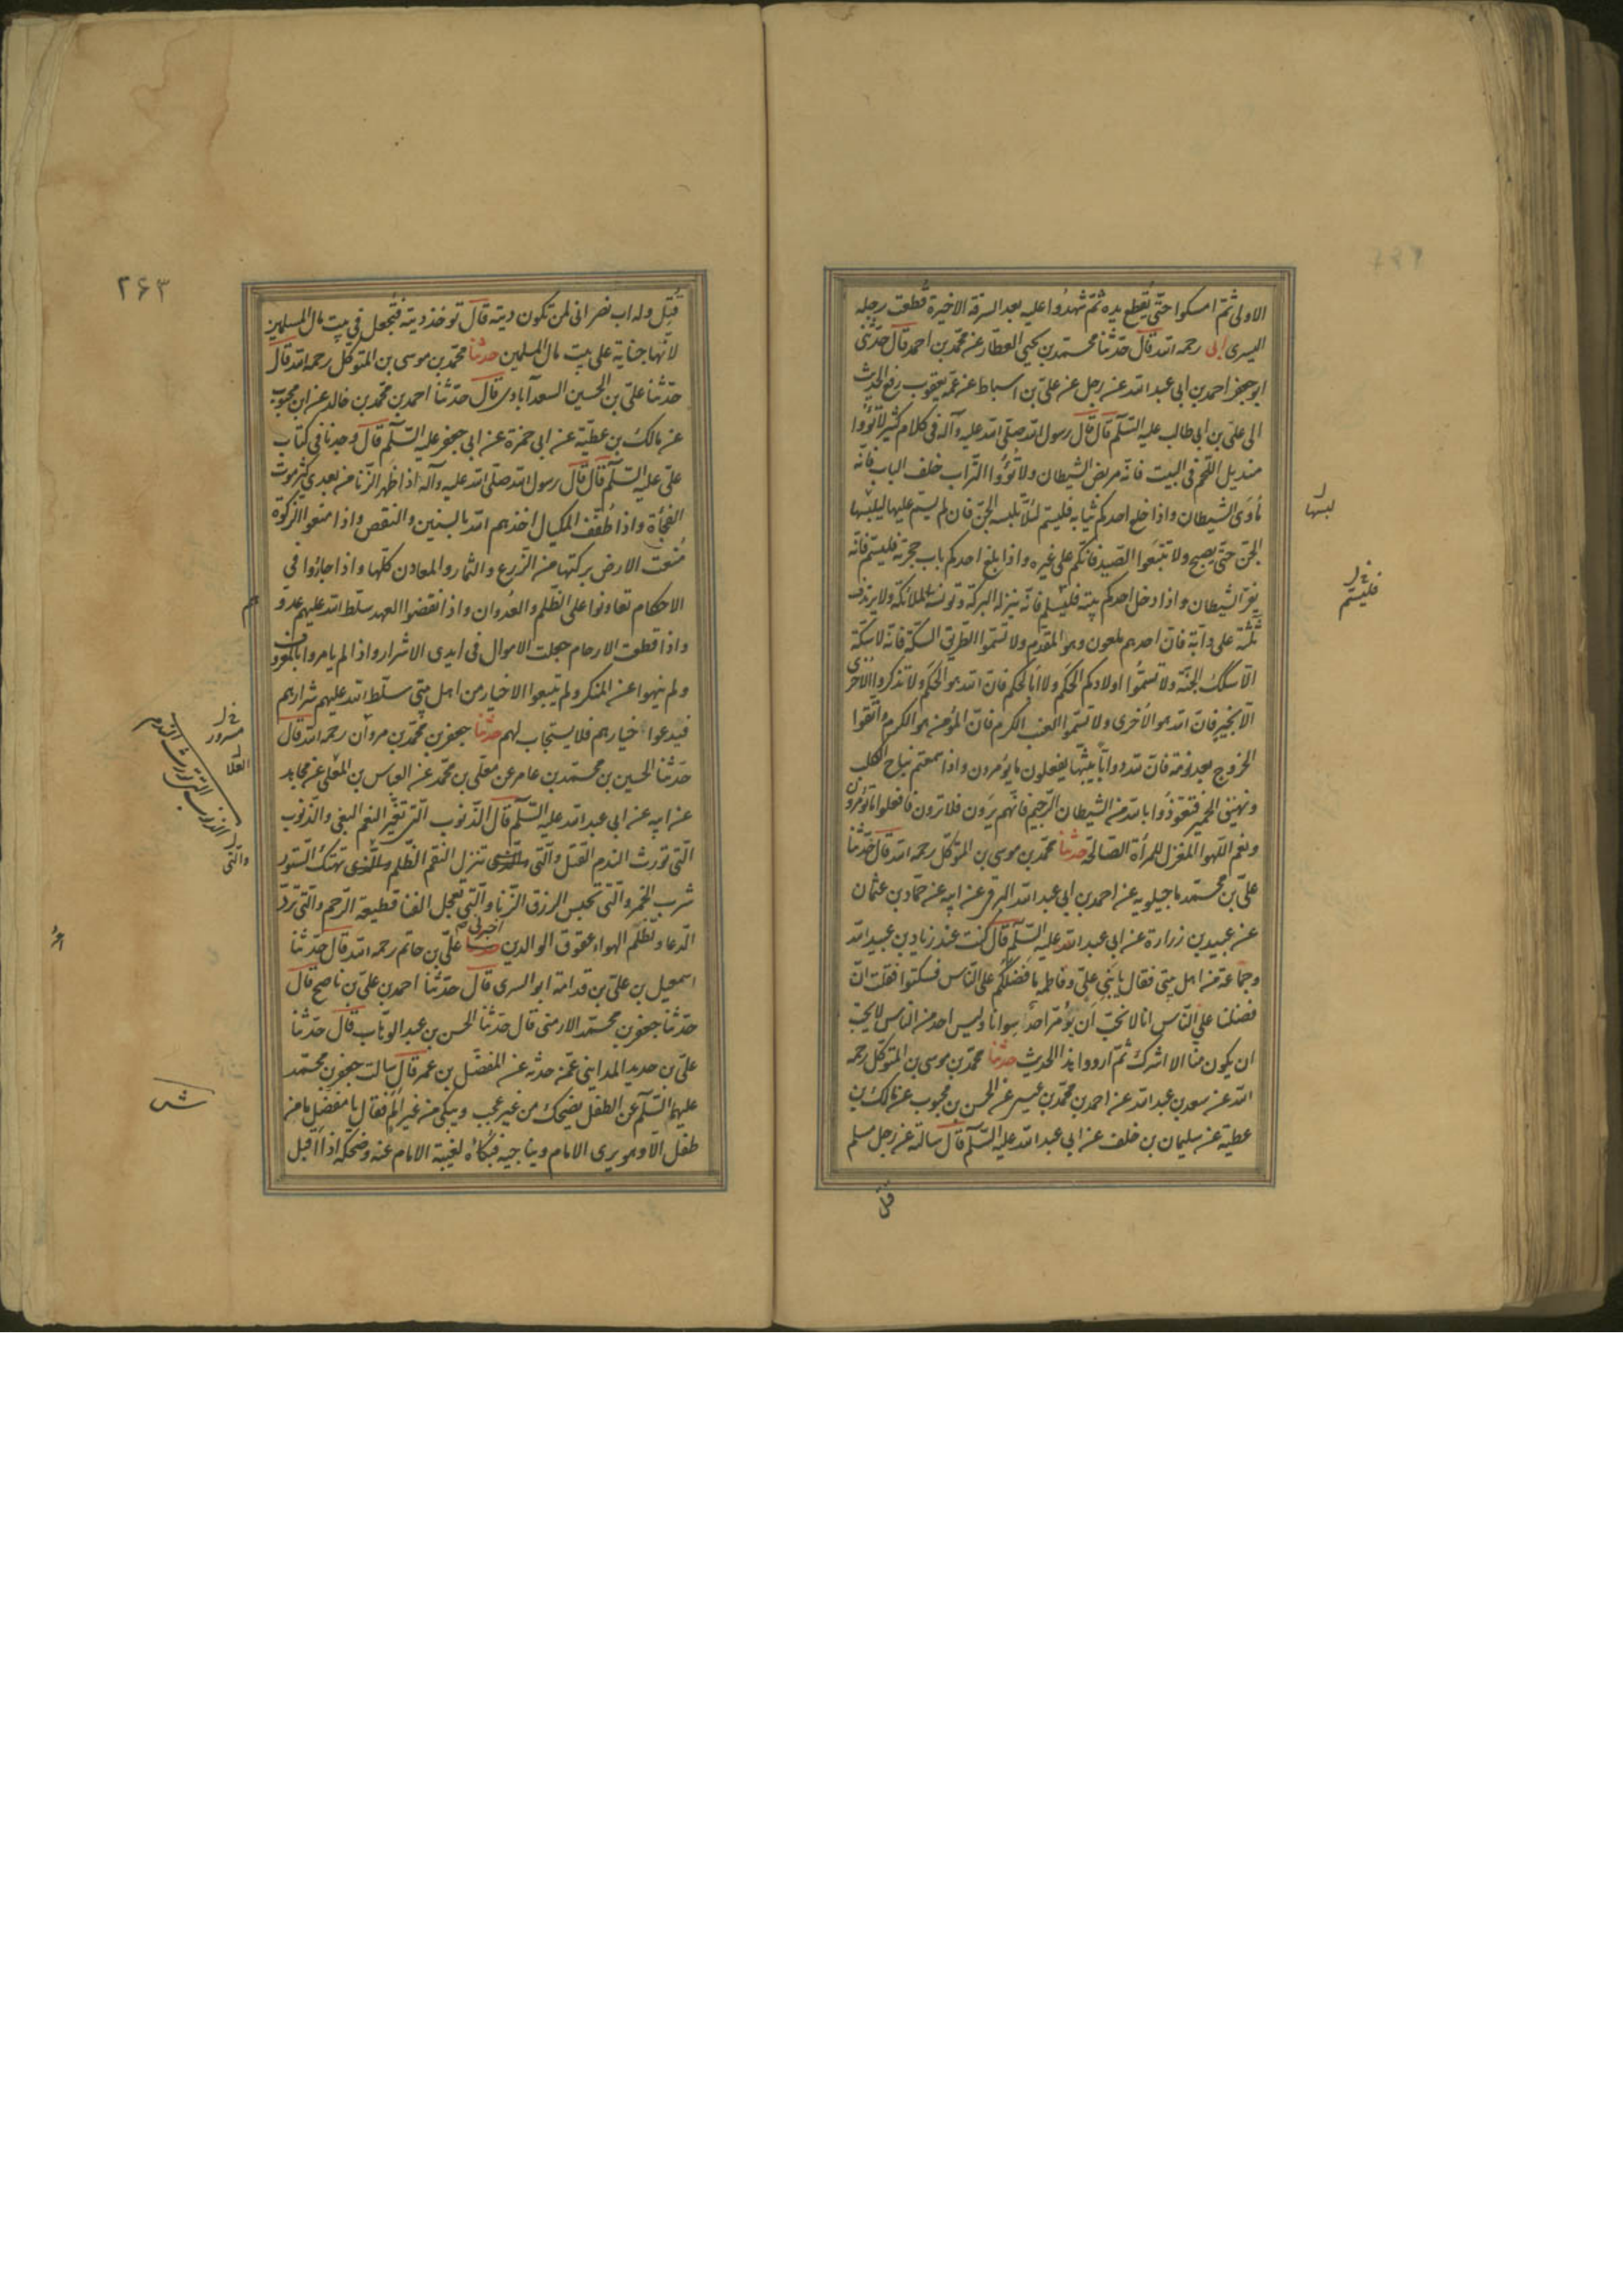 الاولى ثم امسكوا حتى يقطع يده ثم شهدوا عليه بعد السرقة الاخيرة قطعت رجله
اليسرى ابى رحمه الله قال حدثنا محمد بن يحيى العطار عن محمد بن احمد قال حدثنى
ابو جعفر احمد بن ابى عبد الله عن رجل عن على بن اسباط عن عمه يعقوب رفع الحديث
الى على بن ابى طالب عليه السلام قال قال رسول الله صلى الله عليه وآله فى كلام كثير لا تؤوا
منديل اللحم فى البيت فانه مربض الشيطان ولا تؤوا التراب خلف الباب فانه
مأوى الشيطان واذا خلع احدكم ثيابه فليسم لئلا تلبسه الجن فان لم يسم عليها ليلبسها
الجن حتى يصبح ولا تتبعوا الصيد فانكم على غيره واذا بلغ احدكم باب حجرته فليسم فانه
يفر الشيطان واذا دخل احدكم بيته فليسلم فانه ينزله البركة وتونسه الملائكة ولا يرتدف
ثلثة على دابة فان احدهم ملعون وهو المقدم ولا تسموا الطريق السكة فانه لا سكة
الا سكك الجنة ولا تسموا اولادكم الحكم ولا ابا الحكم فان الله هو الحكم ولا تذكروا الاخرى
الا بخير فان الله هو الاخرى ولا تسموا العنب الكرم فان المؤمن هو الكرم واتقوا
الخروج بعد نومة فان لله دوابا يبثها يفعلون ما يؤمرون واذا سمعتم نباح الكلب
ونهيق الحمير فتعوذوا بالله من الشيطان الرجيم فانهم يرون فلا ترون فافعلوا ما تؤمرون
ونعم اللهو المغزل للمرأة الصالحة حدثنا محمد بن موسى بن المتوكل رحمه الله قال حدثنا
على بن محمد ماجيلويه عن احمد بن ابى عبد الله البرقى عن ابيه عن حماد بن عثمان
عن عبيد بن زرارة عن ابى عبد الله عليه السلام قال كنت عند زياد بن عبيد الله
وجماعة من اهل بيتى فقال يا بنى على وفاطمة ما فضلكم على الناس فسكتوا فقلت ان
فضلنا على الناس انا لا نحب ان يؤمر احدا سوانا وليس احد من الناس لا يحب
ان يكون منا الا اشرك ثم ارووا هذا الحديث حدثنا محمد بن موسى بن المتوكل رحمه
الله عن سعد بن عبد الله عن احمد بن محمد بن عيسى عن الحسن بن محبوب عن مالك بن
عطية عن سليمان بن خلف عن ابى عبد الله عليه السلام قال سالته عن رجل مسلم
قتل
لبسها
فليسم
٢۶٣
قتل وله اب نصرانى لمن تكون ديته قال توخذ ديته فتجعل فى بيت مال المسلمين
لانها جناية على بيت مال المسلمين حدثنا محمد بن موسى بن المتوكل رحمه الله قال
حدثنا على بن الحسين السعدآبادى قال حدثنا احمد بن محمد بن خالد عن ابن محبوب
عن مالك بن عطية عن ابى حمزة عن ابى جعفر عليه السلام قال وجدنا فى كتاب
على عليه السلام قال قال رسول الله صلى الله عليه وآله اذا ظهر الزنا من بعدى كثر موت
الفجأة واذا طفف المكيال اخذهم الله بالسنين والنقص واذا منعوا الزكوة
منعت الارض بركتها من الزرع والثمار والمعادن كلها واذا جاروا فى
الاحكام تعاونوا على الظلم والعدوان واذا نقضوا العهد سلط الله عليهم عدو
هم
واذا قطعت الارحام جعلت الاموال فى ايدى الاشرار واذا لم يامروا بالمعروف
ولم ينهوا عن المنكر ولم يتبعوا الاخيار من اهل بيتى سلط الله عليهم شرارهم
فيدعوا خيارهم فلا يستجاب لهم حدثنا جعفر بن محمد بن مروان رحمه الله قال
حدثنا الحسين بن محمد بن عامر عن معلى بن محمد عن العباس بن المعلى عن مجاهد
عن ابيه عن ابى عبد الله عليه السلام قال الذنوب التى تغير النعم البغى والذنوب
التى تورث الندم القتل والتى تنزل النقم الظلم والتى تهتك الستور
شرب الخمر والتى تحبس الرزق الزنا والتى تعجل الفنا قطيعة الرحم والتى ترد
الدعا وتظلم الهواء عقوق الوالدين اخبرنى على بن حاتم رحمه الله قال حدثنا
اسمعيل بن على بن قدامة ابو السرى قال حدثنا احمد بن على بن ناصح قال
حدثنا جعفر بن محمد الارمنى قال حدثنا الحسن بن عبد الوهاب قال حدثنا
على بن حديد المداينى عمن حدثه عن المفضل بن عمر قال سالت جعفر بن محمد
عليهما السلام عن الطفل يضحك من غير عجب ويبكى من غير الم فقال يا مفضل ما من
طفل الا وهو يرى الامام ويناجيه فبكاؤه لغيبة الامام عنه وضحكه اذا اقبل
مسرور
العلا
الذنوب التى تورث الندم
والتى